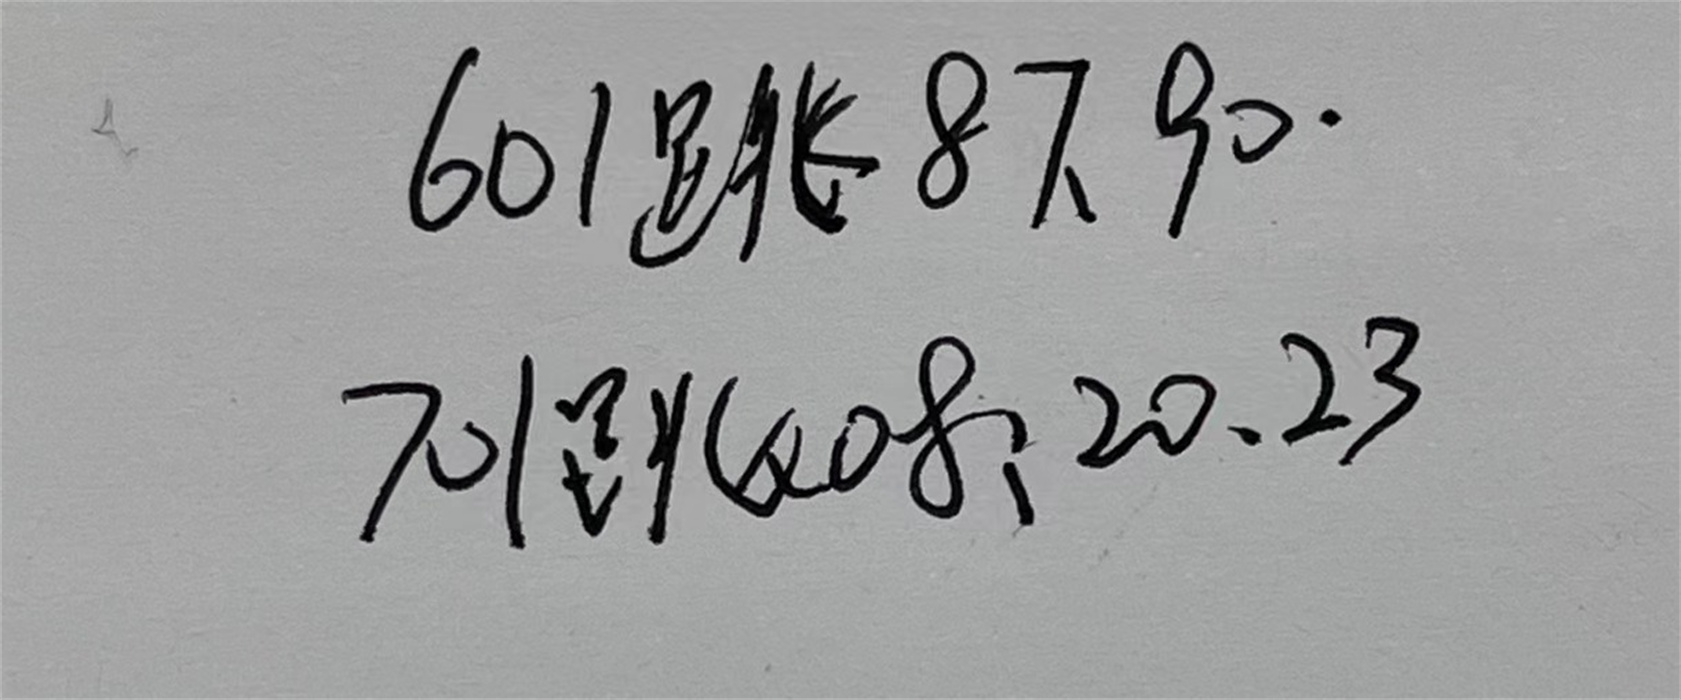 601跟张87、90.
701到收08、20.23